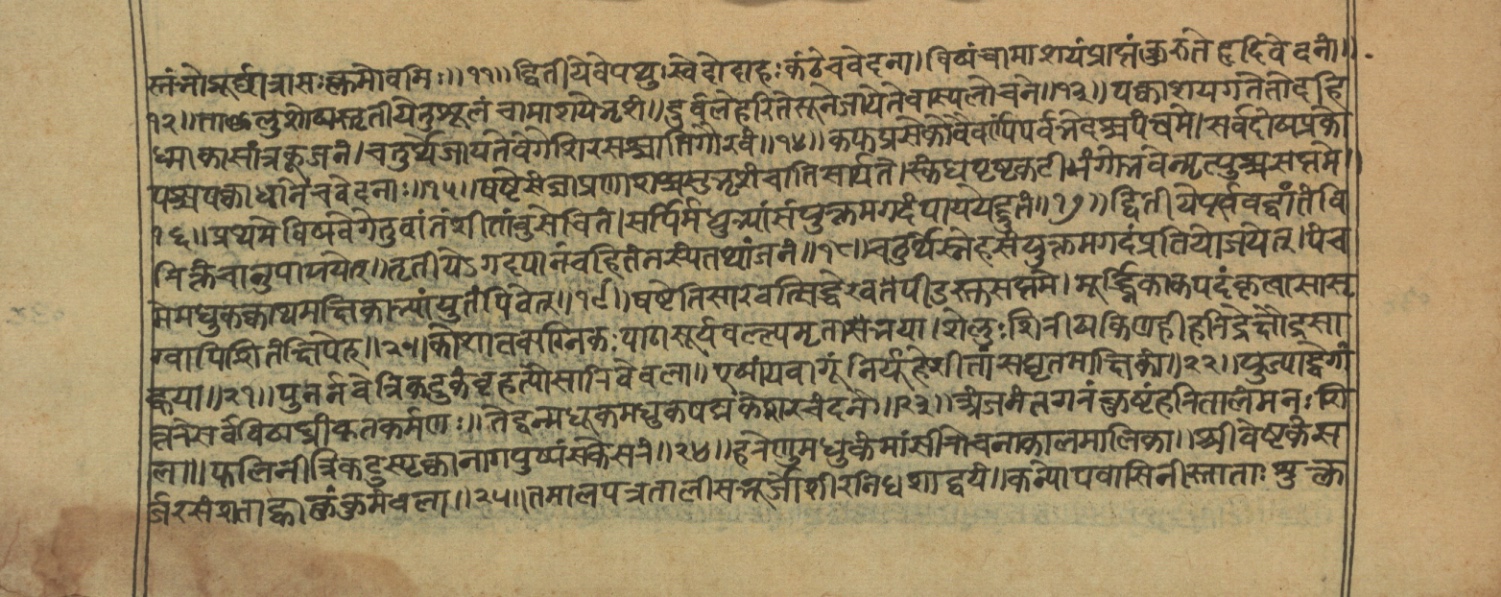 स्तंभोमूर्छात्रासःक्लमोवमिः॥११॥द्वितीयेवेपथुःस्वेदोदाहःकंठेचवेदना।विषंचामाशयंप्राप्तंकुरुतेहृदिवेदनां॥
१२॥तालुशोषस्तृतीयेतुशूलंचामाशयेभृशं॥दुर्बलेहरितेसूनेजायेतेचास्यलोचने॥१३॥पक्वाशयगतेतोदहि
ध्माकासांत्रकूजनं।चतुर्थेजायतेवेगेशिरसश्चातिगौरवं॥१४॥कफप्रसेकोवैवर्ण्यंपर्वभेदश्चपंचमे।सर्वदोषप्रको
पश्चपक्वाधानेचवेदनाः॥१५॥षष्ठेसंज्ञाप्रणाशश्चसुभृशंचातिसार्यते।स्कंधपृष्ठकटीभंगोभवेन्मृत्युश्चसप्तमे।
१६॥प्रथमेविषवेगेतुवांतंशीतांबुसेचितं।सर्पिर्मधुभ्यांसंयुक्तमगदंपाययेद्द्रुतं॥१७॥द्वितीयेपूर्ववद्वांतंवि
रिक्तंचानुपाययेत्॥तृतीयेऽगदपानंचहितंनस्यंतथांजनं॥१८॥चतुर्थेस्नेहसंयुक्तमगदंप्रतियोजयेत्।पंच
मेमधुकक्वाथमाक्षिकाभ्यांयुतंपिवेत्॥१९॥षष्ठेतिसारवत्सिद्धेरवतेपीडस्तसप्तमे।मूर्द्ध्निकाकपदंकृत्वासासृ
ग्वापिशितंक्षिपेत्॥२०॥कोशातक्यग्निकःपाठासूर्यवल्ल्यमृताभया।शेलुःशिरीषकिणिहीहरिद्रेक्षौद्रसा
ह्वया॥२१॥पुनर्नवेत्रिकटुकंबृहत्यौसारिवेवला॥एषांयवागूंनिर्यूहेशीतांसघृतमाक्षिकां॥२२॥युंज्याद्वेगां
तरेसर्वविषघ्नींकृतकर्मणः॥तद्वन्मधूकमधुकपद्मकेशरचंदनैः॥२३॥अंजनंतगरंकुष्टंहरितालंमनःशि
ला॥फलिनीत्रिकटुस्पृक्कानागपुष्पंसकेसरं॥२४॥हरेणुमधुकंमांसीरोचनाकालमालिका॥श्रीवेष्टकंस
र्जरसंशताह्वाकुंकुमंवला॥२५॥तमालपत्रतालीसभूर्जोशीरनिशाद्वयं॥कन्योपवासिनीस्नाताःशुक्ल